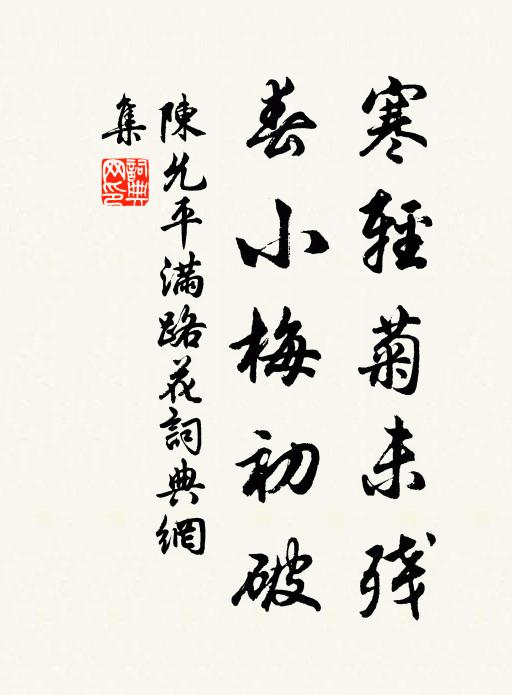 寒輕菊未殘
春小梅初破
陳允平滿路花詞典網
集
詞典网印